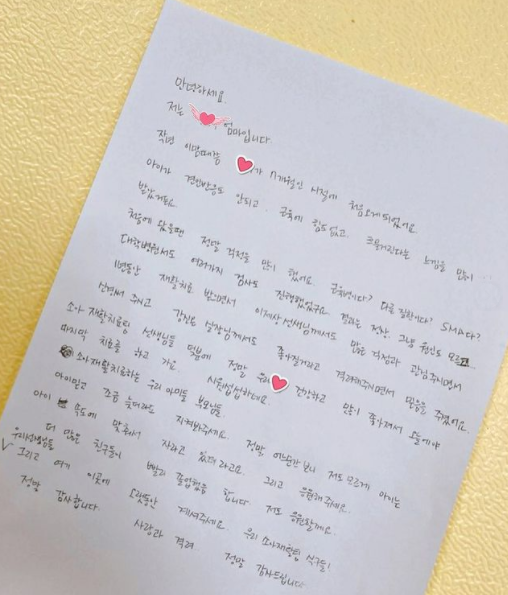 안녕하세요
저는 엄마입니다.
작년 이맘때쯤 가 11개월인 시점에 처음 오게 되었어요.
아이가 경련반응도 안되고, 근육에 힘도 없고 느낌을 많이
받았거든요.
처음에 왔을땐 정말 걱정을 많이 했어요. 근육병이다? 다른 질환이다? SMA다?
대학병원서도 여러가지 검사도 진행했었구요. 결과는 정상. 그냥 원인도 모르고
1년동안 재활치료 받으면서 선생님께서도 많은 걱정과 관심주시면서
신경써 주시고 께서도 좋아질거라고 격려해주시면서 믿음을 주셨어요.
소아 재활치료팀 선생님들 덕분에 정말 우리 건강하고 많이 좋아져서 오늘에야
마지막 치료를 하고 가요. 시원섭섭하네요
소아재활치료하는 우리 아이들 부모님들.
아이믿고 조금 늦더라도 지켜봐주세요. 정말 어느순간 보니 저도 모르게 아이는
아이 속도에 맞춰서 자라고 있더라고요. 그리고 응원해 주세요.
더 많은 친구들이 빨리 졸업했음 합니다 저도 응원할게요.
우리선생님들 오랫동안 계셔주세요. 우리 소아재활팀 식구들!
그리고 여기 이곳에 사랑과 격려 정말 감사드립니다
정말 감사합니다.